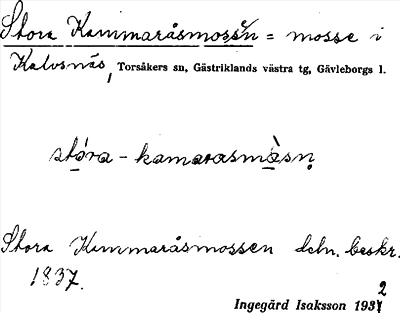 Stora Kammaråsmossen = mosse i
Kalvsnäs, Torsåkers sn, Gästriklands västra tg, Gävleborgs l.
stóra - kamarasmàsn̥
Stora Kammaråsmossen debn. beskr.
1837.
Ingegärd Isaksson 1932